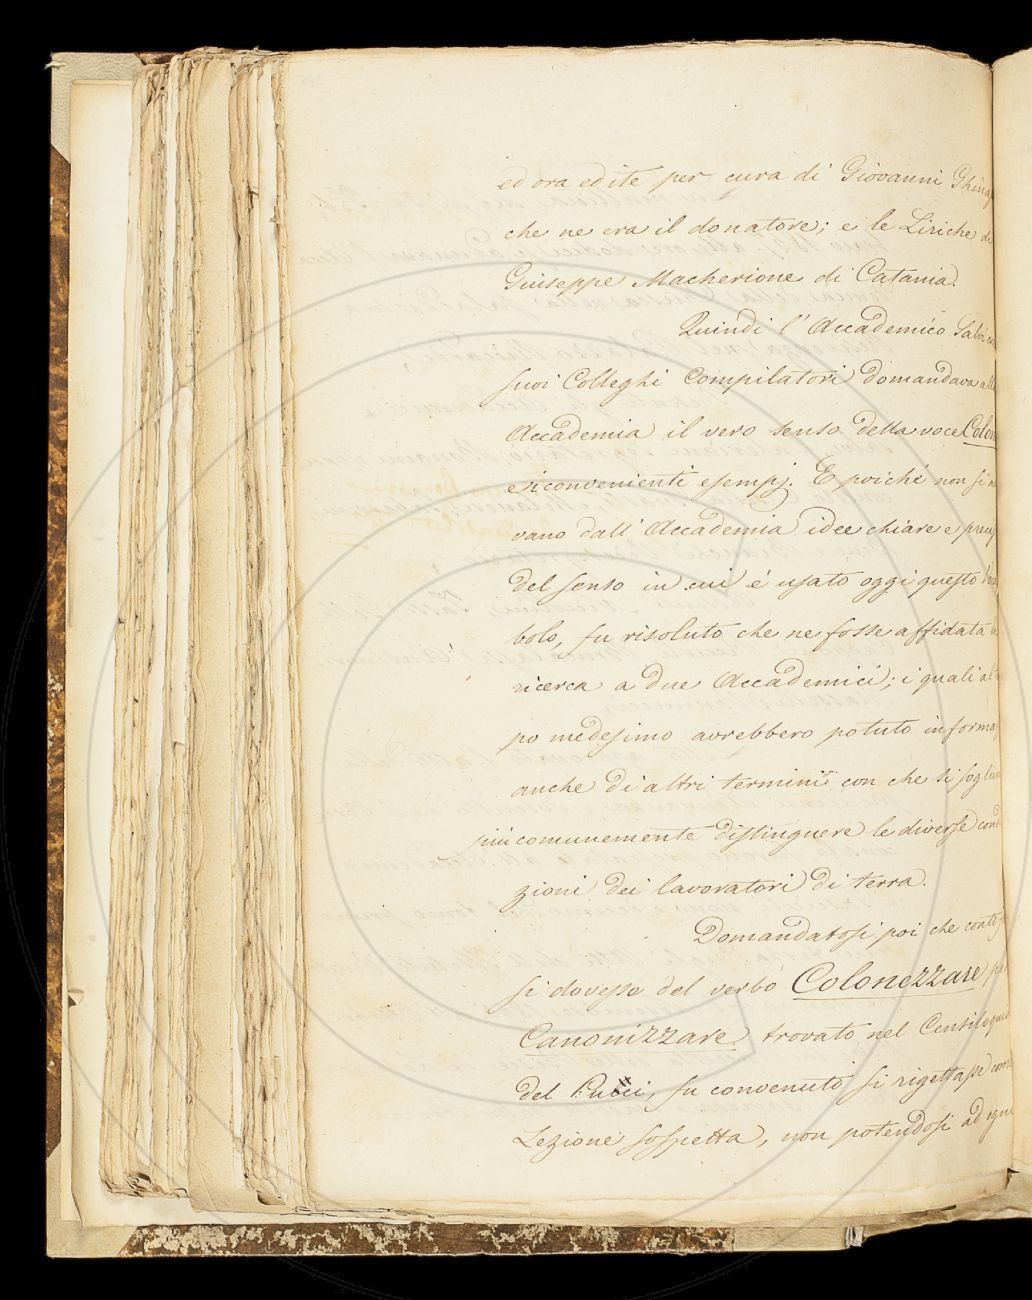 ed ora edite per cura di Giovanni Ghing
che ne era il donatore; e le Liriche di
Giuseppe Macherione di Catania.
Quindi l'Accademico Salvi co
suoi Colleghi Compilatori domandava all
Accademia il vero senso della voce Colon
e i convenienti esempj. E poiché non si a
vano dall'Accademia idee chiare e precis
del senso in cui é usato oggi questo Voca
bolo, fu risoluto che ne fosse affidata la
ricerca a due Accademici; i quali al te
po medesimo avrebbero potuto informar
anche di altri termini con che si soglion
piú comunemente distinguere le diverse condi
zioni dei lavoratori di terra.
Domandatosi poi che conto
si dovesse del verbo Colonezzare per
Canonizzare trovato nel Centiloquio
del Pucci, fu convenuto si rigettasse come
Lezione sospetta, non potendosi ad ogni